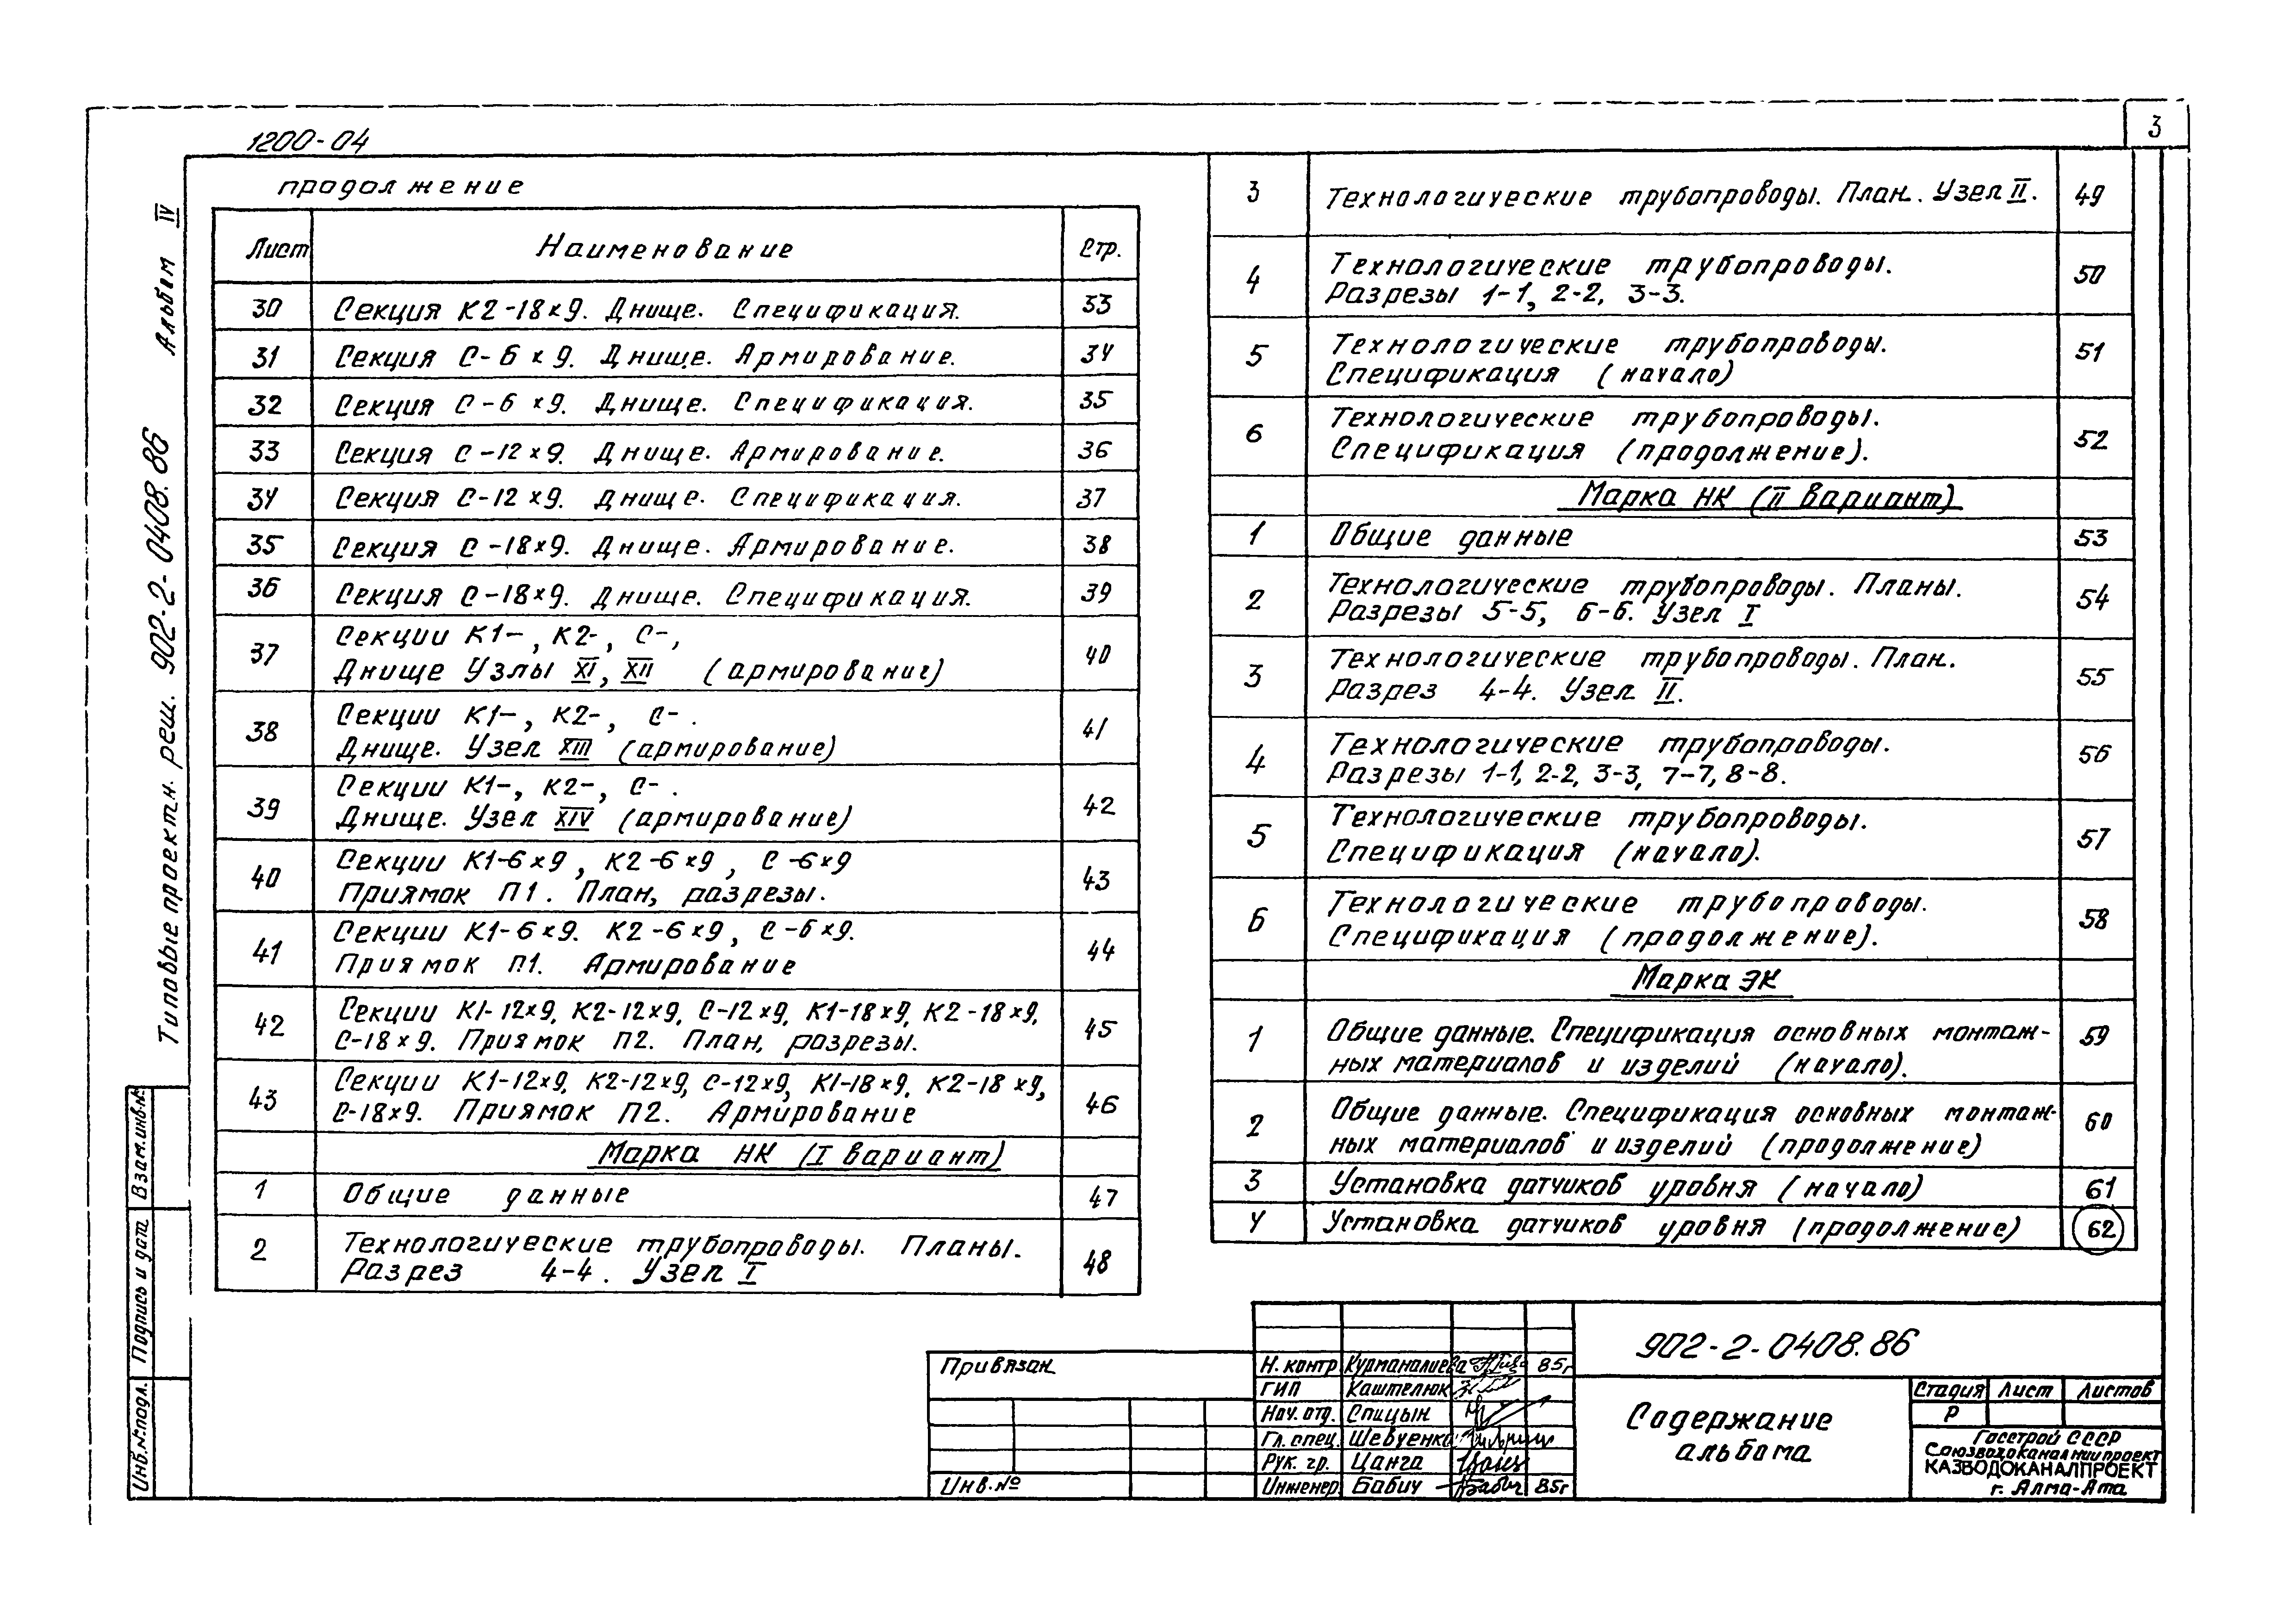 3
1200-04
Типовые проектн. реш. 902-2-0408.86 Альбом IV
продолжение
Лист Наименование Стр.
30 Секция К2-18×9. Днище. Спецификация. 33
31 Секция С-6×9. Днище. Армирование. 34
32 Секция С-6×9. Днище. Спецификация. 35
33 Секция С-12×9. Днище. Армирование. 36
34 Секция С-12×9. Днище. Спецификация. 37
35 Секция С-18×9. Днище. Армирование. 38
36 Секция С-18×9. Днище. Спецификация. 39
37 Секции К1-, К2-, С-, 40
Днище Узлы XI, XII (армирование)
38 Секции К1-, К2-, С-. 41
Днище. Узел XIII (армирование)
39 Секции К1-, К2-, С-. 42
Днище. Узел XIV (армирование)
40 Секции К1-6×9, К2-6×9, С-6×9 43
Приямок П1. План, разрезы.
41 Секции К1-6×9. К2-6×9, С-6×9. 44
Приямок П1. Армирование
42 Секции К1-12×9, К2-12×9, С-12×9, К1-18×9, К2-18×9, 45
С-18×9. Приямок П2. План, розрезы.
43 Секции К1-12×9, К2-12×9, С-12×9, К1-18×9, К2-18×9, 46
С-18×9. Приямок П2. Армирование
Марка НК (I вариант)
1 Общие данные 47
2 Технологические трубопроводы. Планы. 48
Разрез 4-4. Узел I
3 Технологические трубопроводы. План. Узел II. 49
4 Технологические трубопроводы. 50
Разрезы 1-1, 2-2, 3-3.
5 Технологические трубопроводы. 51
Спецификация (начало)
6 Технологические трубопроводы. 52
Спецификация (продолжение).
Марка НК (II вариант)
1 Общие данные 53
2 Технологические трубопроводы. Планы. 54
Разрезы 5-5, 6-6. Узел I
3 Технологические трубопроводы. План. 55
Разрез 4-4. Узел II.
4 Технологические трубопроводы. 56
Разрезы 1-1, 2-2, 3-3, 7-7, 8-8.
5 Технологические трубопроводы. 57
Спецификация (начало).
6 Технологические трубопроводы. 58
Спецификация (продолжение).
Марка ЭК
1 Общие данные. Спецификация основных монтаж- 59
ных материалов и изделий (начало).
2 Общие данные. Спецификация основных монтаж- 60
ных материалов и изделий (продолжение)
3 Установка датчиков уровня (начало) 61
4 Установка датчиков уровня (продолжение) 62
Взам.инв.№
Подпись и дата
Инв.№подл.
Привязан
Инв.№
Н. контр Курманалиева 85г
ГИП Каштелюк
Нач. отд. Спицын
Гл. спец. Шевченко
Рук. гр. Цанга
Инженер Бабич 85г
902-2-0408.86
Содержание
альбома
Стадия Лист Листов
Р
Госстрой СССР
Союзводоканалниипроект
КАЗВОДОКАНАЛПРОЕКТ
г. Алма-Ата